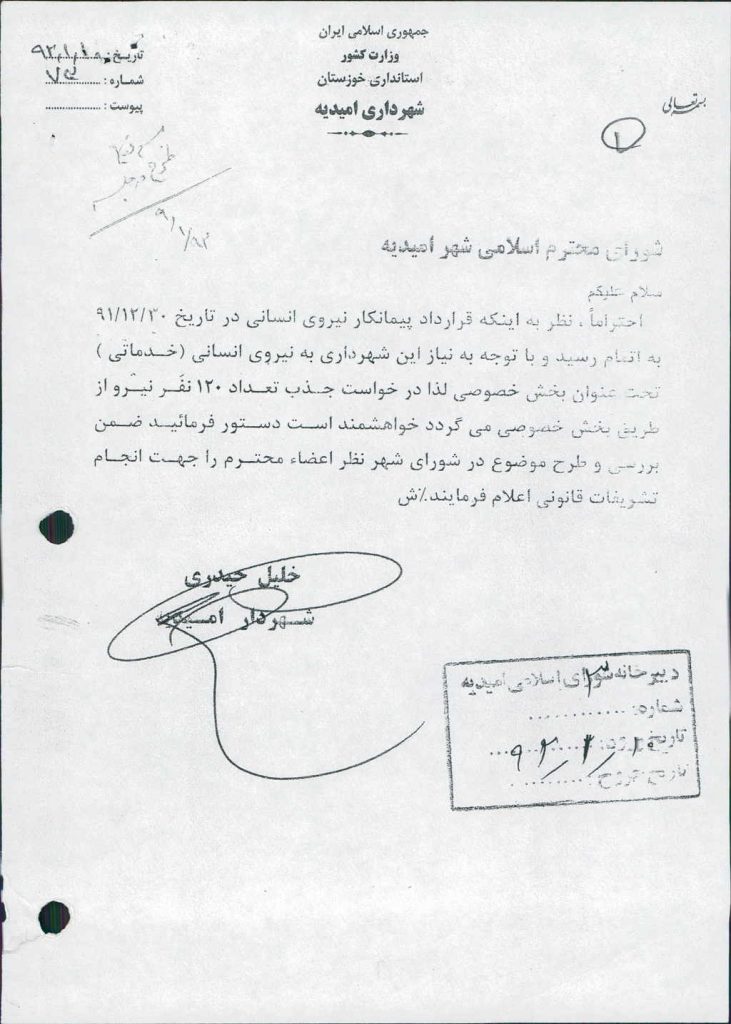 بسمه تعالی
جمهوری اسلامی ایران
وزارت کشور
استانداری خوزستان
شهرداری امیدیه
تاریخ:
شماره:
پیوست:
شورای محترم اسلامی شهر امیدیه
سلام علیکم
احتراماً، نظر به اینکه قرارداد پیمانکار نیروی انسانی در تاریخ ۹۱/۱۲/۳۰
به اتمام رسید و با توجه به نیاز این شهرداری به نیروی انسانی (خدماتی)
تحت عنوان بخش خصوصی لذا در خواست جذب تعداد ۱۲۰ نفر نیرو از
طریق بخش خصوصی می گردد خواهشمند است دستور فرمائید ضمن
بررسی و طرح موضوع در شورای شهر نظر اعضاء محترم را جهت انجام
تشریفات قانونی اعلام فرمایند٪ش
خلیل حیدری
شهردار امیدیه
دبیرخانه شورای اسلامی امیدیه
شماره:
تاریخ ورود:
تاریخ خروج: